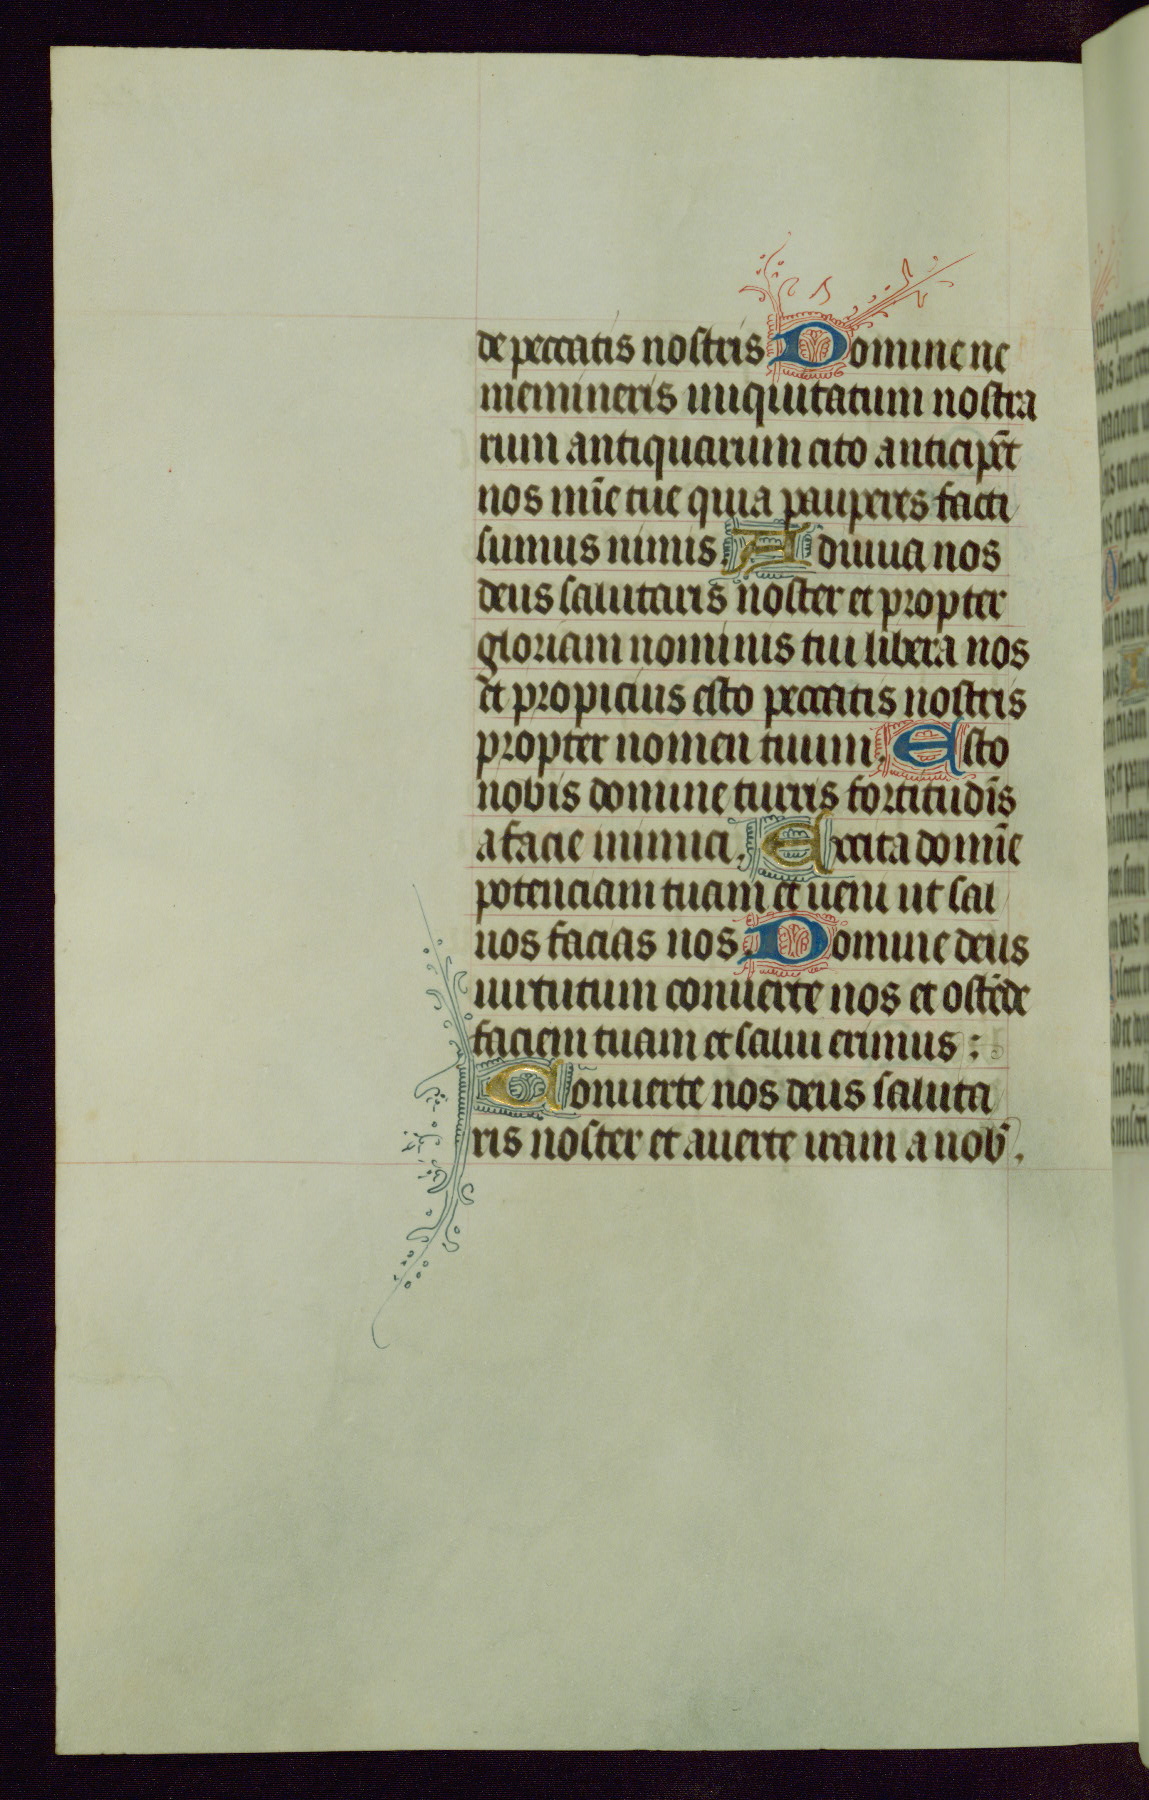 de peccatis nostris Domine ne
memineris iniquitatum nostra
rum antiquarum cito anticipēt
nos mīe tue quia pauperes facti
sumus nimis. Adiuua nos
deus salutaris noster et propter
gloriam nominis tui libera nos
et propicius esto peccatis nostris
propter nomen tuum. Esto
nobis domine turris fortitudīs
a facie inimici. Excita domīe
potenciam tuam et ueni ut sal
uos facias nos. Domine deus
uirtutum conuerte nos et ostēde
faciem tuam et salui erimus :
Conuerte nos deus saluta
ris noster et auerte iram a nob'.